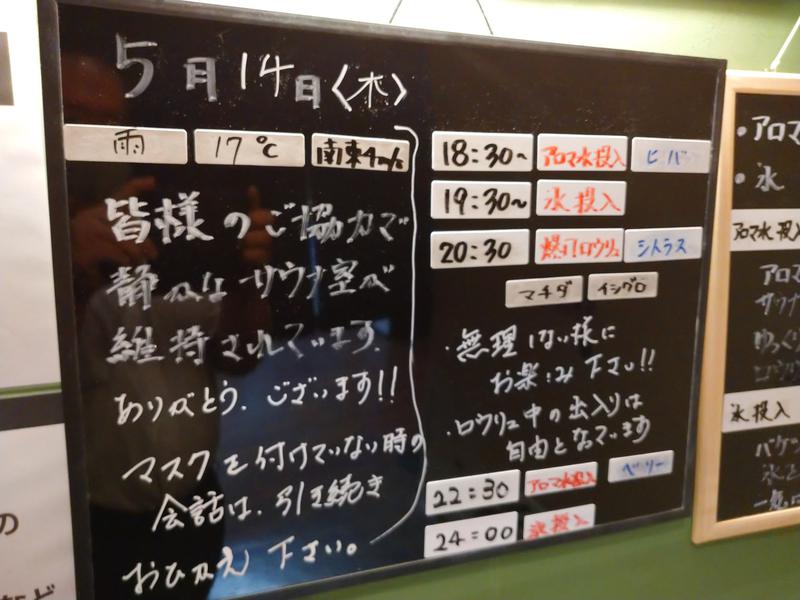 5月14日〈木〉
雨 17℃ 南東4m/s
皆様のご協力で
静かなサウナ室が
維持されています。
ありがとう、ございます!!
マスクを付けていない時の
会話は、引き続き
おひかえ下さい。
18:30~ アロマ水投入 ヒバ
19:30~ 氷投入
20:30 爆門ロウリュ シトラス
マチダ イシグロ
・無理しない様に
お楽しみ下さい!!
・ロウリュ中の出入りは
自由となっています
22:30 アロマ水投入 ベリー
24:00 氷投入
・アロマ
・氷
アロマ水投入
アロマ
サウナ
ゆっくり
ロウリュ
氷投入
バケツ
氷と
一気に
の
など